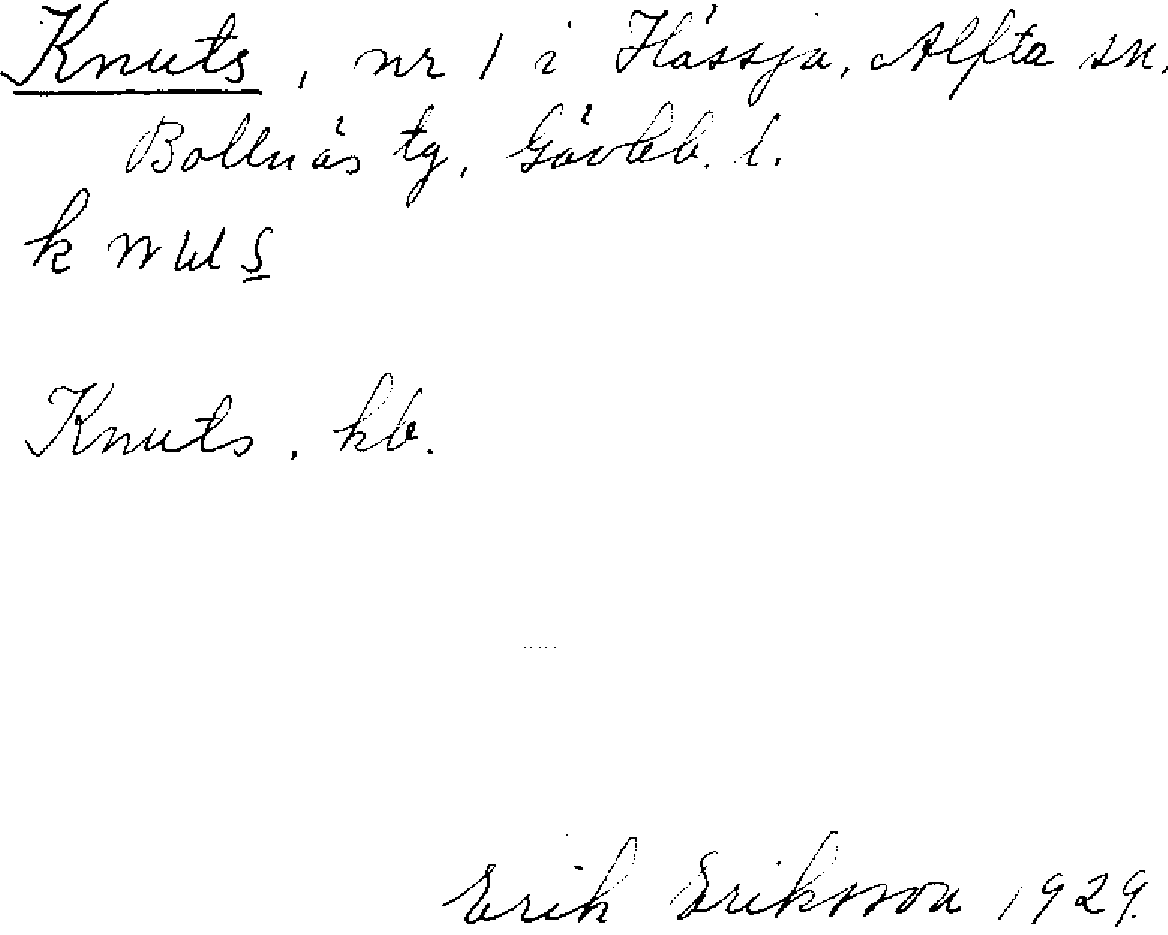 Knuts, nr 1 i Hässja, Alfta sn.
Bollnäs tg, Gävleb. l.
Knuts, kb.
Erik Eriksson 1929.